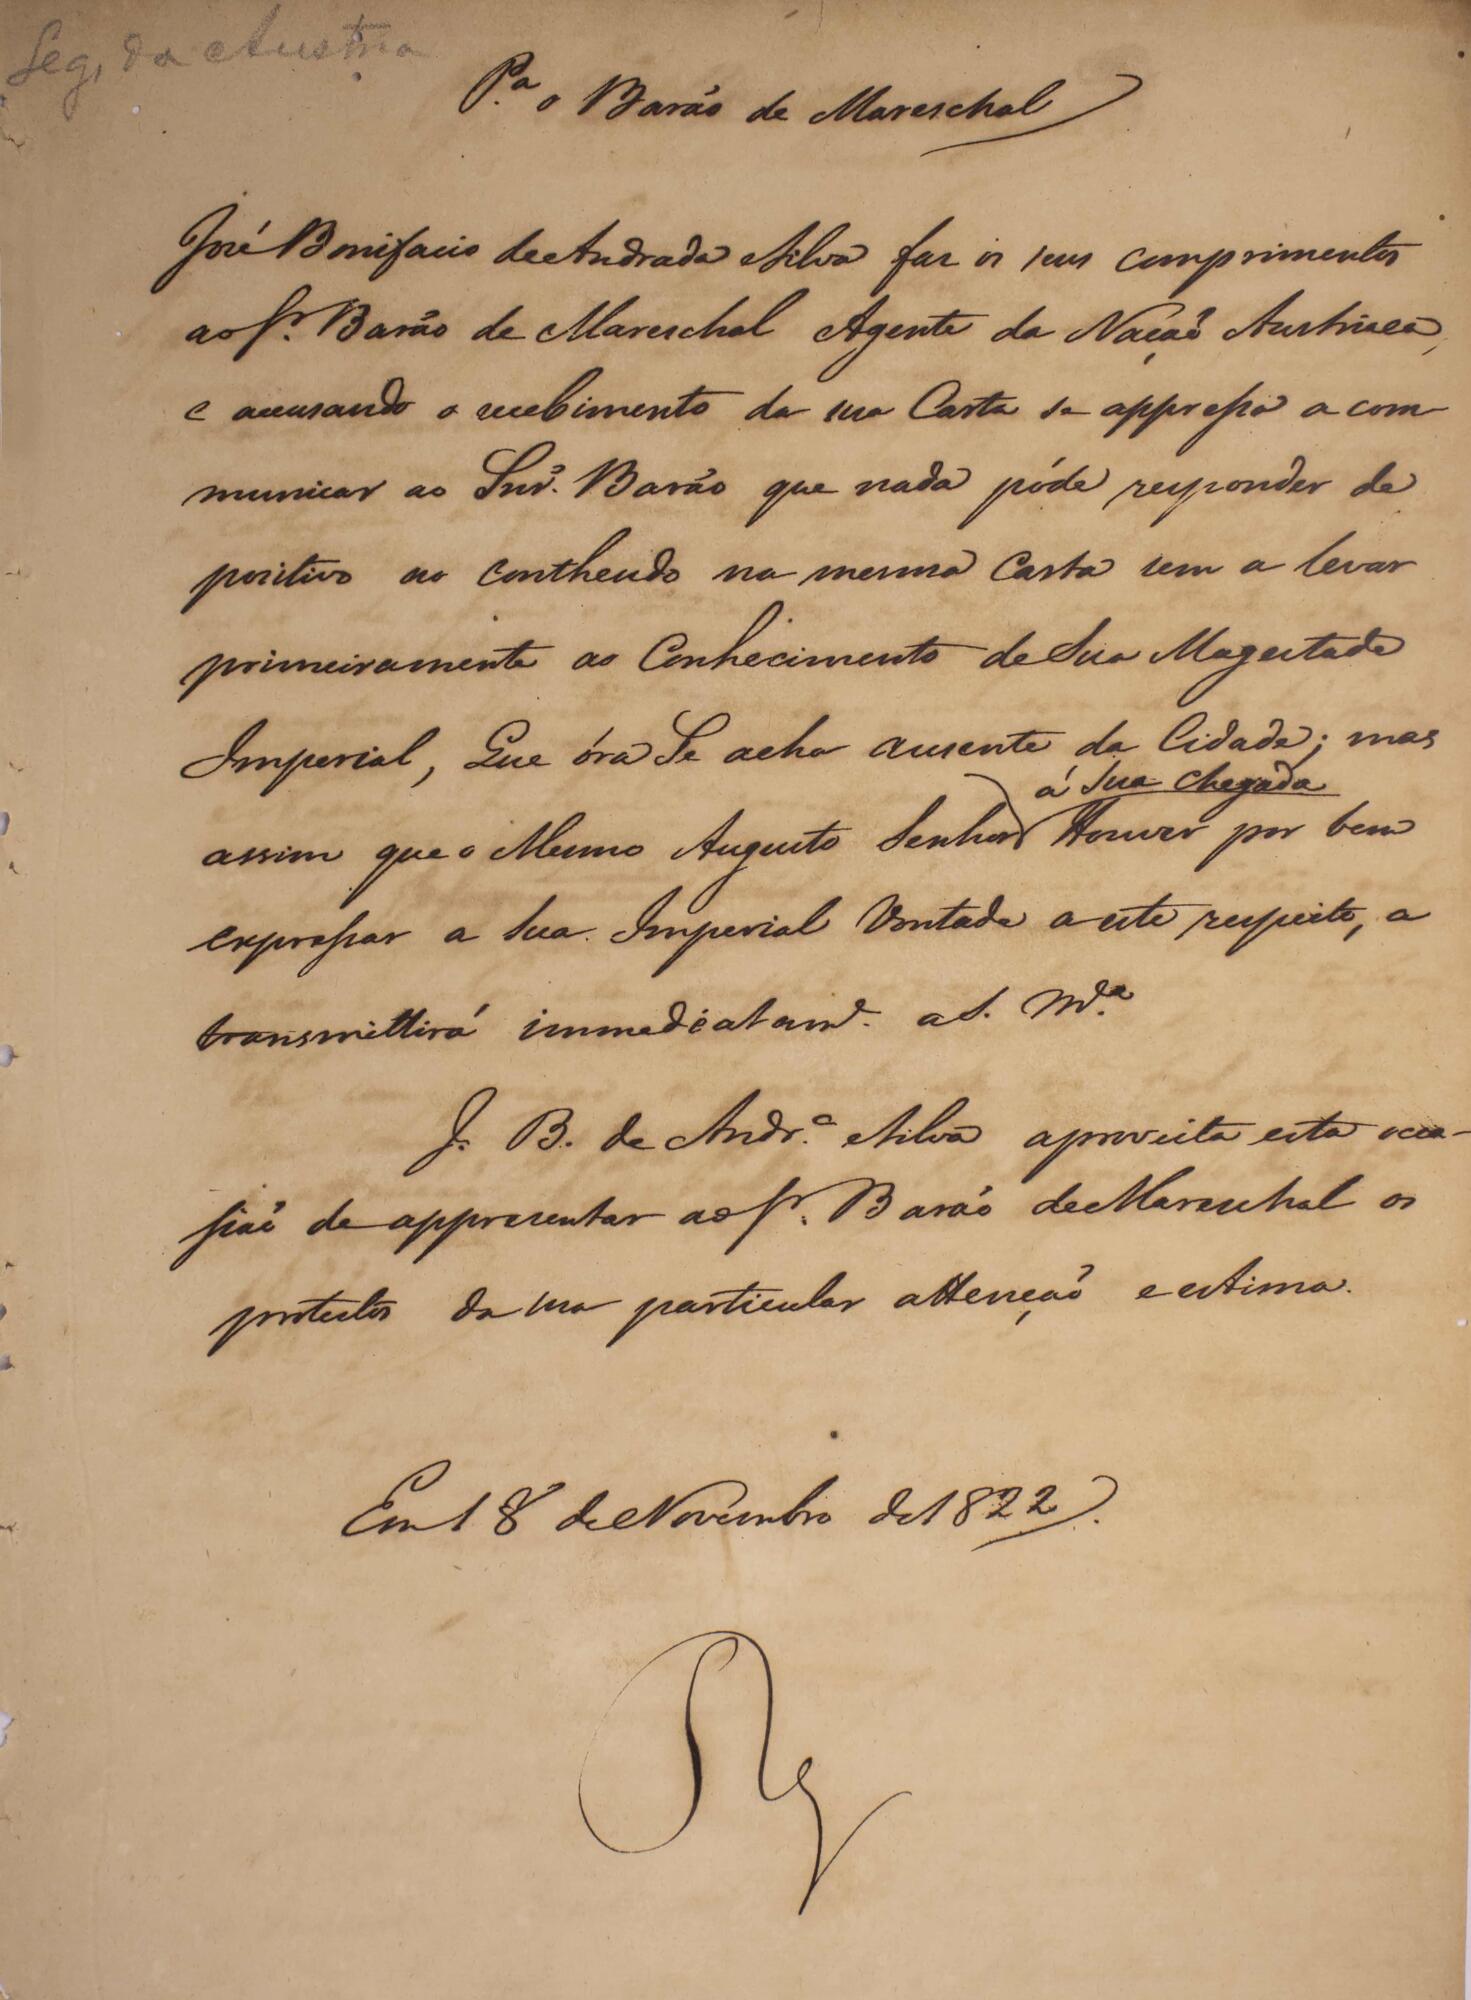 Leg. da Austria
P.ª o Barão de Mareschal
José Bonifacio de Andrada e Silva faz os seus comprimentos
ao Sr. Barão de Mareschal Agente da Nação Austriaca,
e accusando o recebimento da sua Carta se appressa a com-
municar ao Snr. Barão que nada póde responder de
positivo ao contheudo na mesma Carta sem a levar
primeiramente ao Conhecimento de Sua Magestade
Imperial, Que óra Se acha ausente da Cidade; mas
á sua chegada
assim que o Mesmo Augusto Senhor Houver por bem
expressar a Sua Imperial Vontade a este respeito, a
transmittirá immediatam.e a S. M.ce
J. B. de Andr.ª e Silva aproveita esta occa-
sião de appresentar ao Sr. Barão de Mareschal os
protestos da sua particular attenção e estima.
Em 18 de Novembro de 1822.